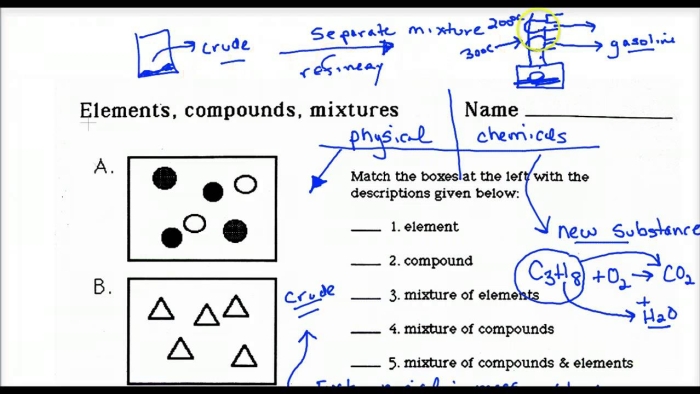 crude
Separate mixture
refinery
200c
300c
gasoline
Elements, compounds, mixtures
Name
physical
chemicals
A.
Match the boxes at the left with the
descriptions given below:
1. element
new substance
2. compound
C3H8 + O2 → CO2
+
H2O
B.
crude
3. mixture of elements
4. mixture of compounds
5. mixture of compounds & elements